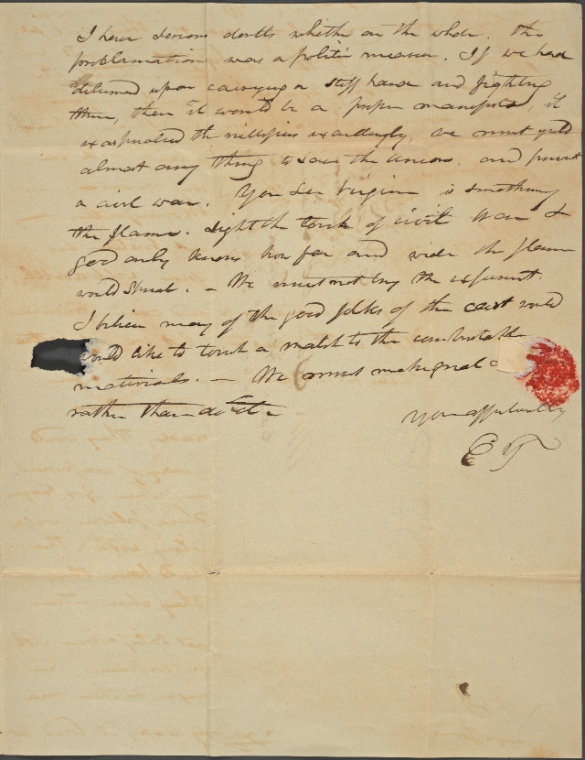 I have serious doubts whether on the whole, the
proclamation was a politic measure. If we had
determined upon carrying a stiff hand and fighting
then, then it would be a proper manifesto, it
exasperated the nullifiers exceedingly, we must yield
almost any thing to save the Union, and prevent
a civil war. You see Virginia is smothering
the flame. Light the torch of civil War &
god only knows how far and wide the flame
would spread. - We must not try the experiment.
I believe many of the good folks of the east would
would like to touch a match to the combustable
materials. - We must make great
rather than do it -
Yours affectionately